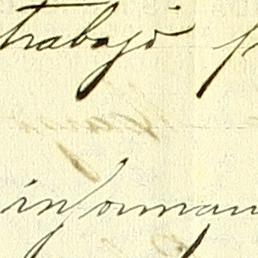 trabajó
informan